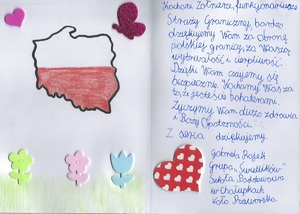 Kochani Żołnierze, funkcjonariusze
Straży Granicznej, bardzo
dziękujemy Wam za obronę
polskiej granicy, za Waszą
wytrwałość i cierpliwość.
Dzięki Wam czujemy się
bezpiecznie. Kochamy Was za
to, że jesteście bohaterami.
Życzymy Wam dużo zdrowia
i Bożej Opatrzności.
Z serca dziękujemy.
Gabriela
Grupa „Świetlików"
Szkoła Podstawowa
w Chałupkach
koło Przeworska